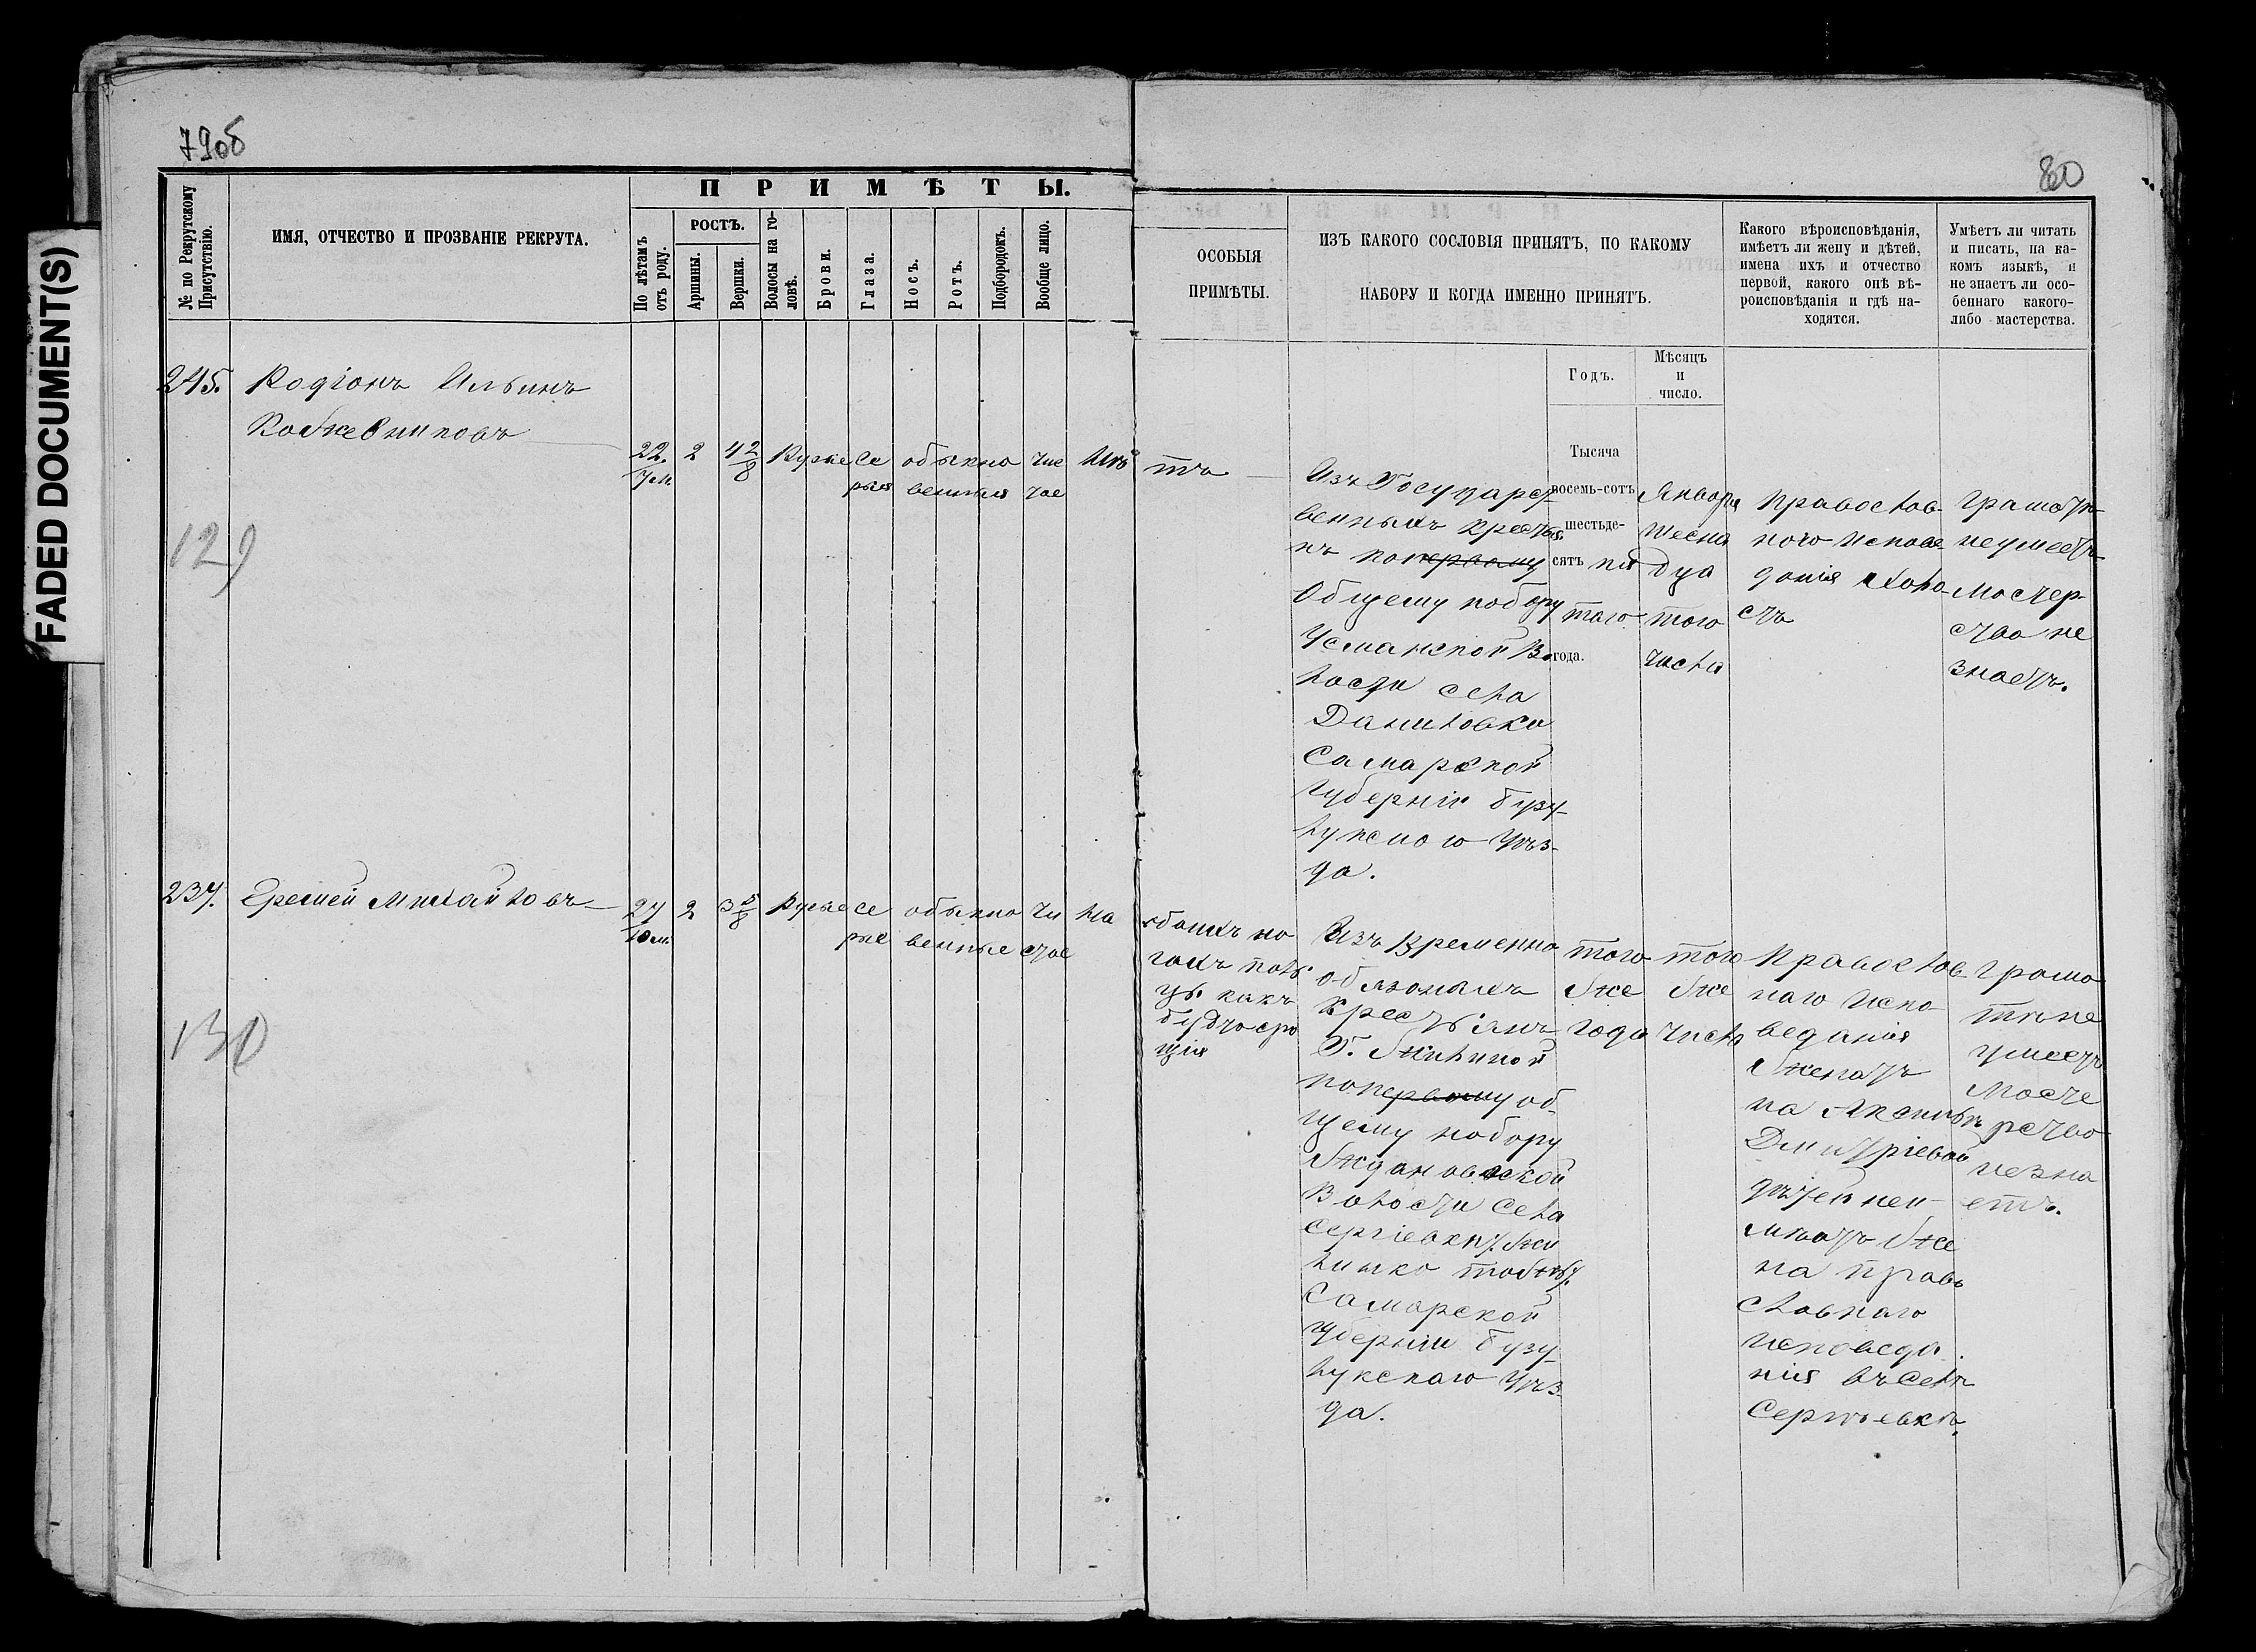 FADED DOCUMENT(S)
79об
80
П Р И М Ѣ Т Ы.
№ по Рекрутскому
Присутствію.
ИМЯ, ОТЧЕСТВО И ПРОЗВАНІЕ РЕКРУТА.
По лѣтамъ
отъ роду.
РОСТЪ.
Аршины.
Вершки.
Волосы на го-
ловѣ.
Брови.
Глаза.
Носъ.
Ротъ.
Подбородокъ.
Вообще лицо.
ОСОБЫЯ
ПРИМѢТЫ.
ИЗЪ КАКОГО СОСЛОВІЯ ПРИНЯТЪ, ПО КАКОМУ
НАБОРУ И КОГДА ИМЕННО ПРИНЯТЪ.
Какого вѣроисповѣданія,
имѣетъ ли жену и дѣтей,
имена ихъ и отчество
первой, какого онѣ вѣ-
роисповѣданія и гдѣ на-
ходятся.
Умѣетъ ли читать
и писать, на ка-
комъ языкѣ, и
не знаетъ ли осо-
беннаго какого-
либо мастерства.
Годъ.
Мѣсяцъ
и
число.
245. Родіонъ Ильинъ
Кожевниковъ
22 2 4 2/8 Русые се обыкно чис нѣ
7 м. рыя венныя тое
тъ
129
Изъ Государст-
венныхъ кресть
нъ по первому
Общему набору
Усманской Во
лости села
Даниловки
Самарской
Губерніи бузу-
лукскаго уѣз-
да.
Тысяча
восемь-сотъ
шестьде-
сятъ пя
таго
года.
Января
шесна
дца
того
числа
Православ-
ного испове
данія холо-
стъ
Грамотѣ
неумеетъ
Мастер-
ство не
знаетъ.
237. Еремей Михайловъ
27 2 3 5/8 Русые се обыкно чи на
10 м. рые венные стое
обоихъ но
гахъ паль
цы какъ
будто сро
щія
130
Изъ Временно
обязаныхъ
Крестьянъ
Г. Жилиной
по первому об-
щему набору
Ждановской
Волости села
Сергіевки
Самарской
Губерніи бузу-
лукскаго уѣз-
да.
того
же
года
того
же
числ
Православ-
наго испо-
веданія
женатъ
на Аксиньѣ
Дмитріевой
дѣтей неи-
мѣетъ же
на право
славнаго
исповеда
нія въ селѣ
Сергѣевкѣ.
Грамо
тѣ не
умеетъ
Масте
рство
незна
етъ.